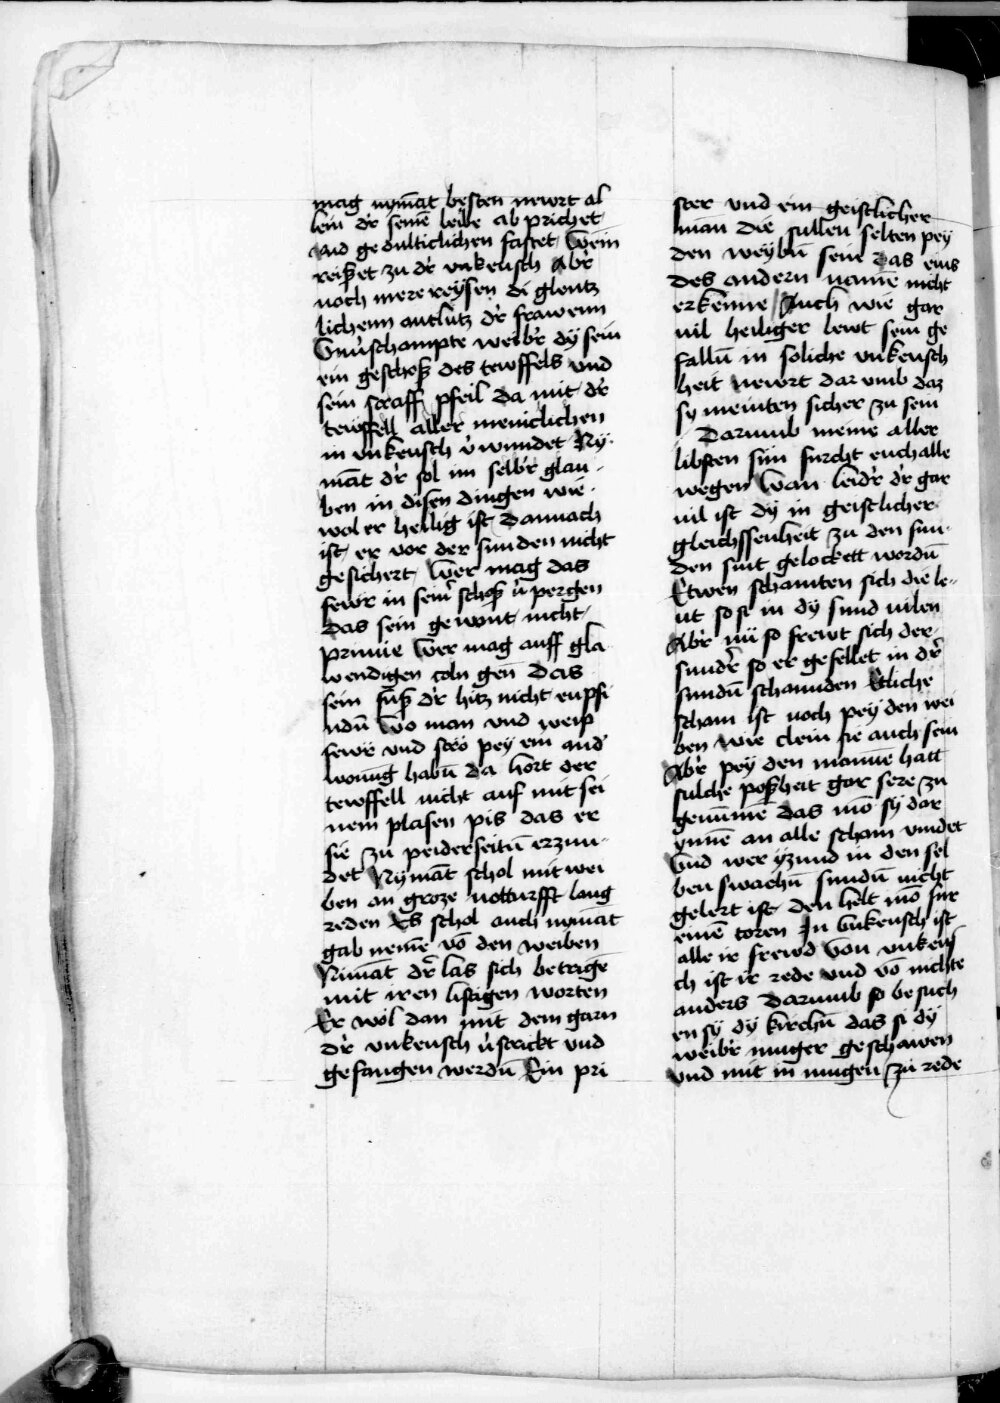 mag nyma̅t besten newrt al
lein dr̕ seine̅ leibe ab prichet
vnd gedulticlichen fastet / Wein
reiſzet zu dr̕ vnkeusch Abr̕
noch mere reÿsen di glentz
lichenn antlutz dr̕ frawenn
Vnuͦschampte weibr̕ dÿ sein
ein geschosz des tewffels vnd
sein scraff pfeil da mit dr̕
tewffell aller meniclichen
in vnkeusch v̕wundet Ny-
ma̅t dr̕ sol im selbr̕ glau-
ben in disen dingen wie-
wol er heilig ist Dannach
ist / er vor der sunden nicht
gesichert / Wer mag das
fewr in seim̅ schosz v̕pergen
das sein gewant nicht /
prinne Wer mag auff gla
wendigen coln gen̅ Das
sein fu̅sz dr̕ hitz nicht enpfi
ndu̅ Wo man vnd weip
fewr̕ vnd stro pey ein and̕
wonu̅g habu̅ da hort der
tewffell nicht auf mit sei
nem plasen pis das er
sie zu peiderseitu̅ erzun-
det Nyma̅t schol mit wei
ben an groze notturfft lang
reden Es schol auch nyma̅t
gab neme̅ vo̅ den weiben
Nima̅t dr̕ las sich betrage̅
mit iren listigen worten
Er wol dan mit dem garn
dr̕ vnkeusch v̕strickt vnd
gefangen werdu̅ Ein pri
ster vnd ein geistlicher
man die sullen selten pey
den weybu̅ sein das eins
des andern name̅ nicht
erkenne / Auch wie gar
uil heiliger lewt sein ge
fallu̅ in soliche vnkeusch
heit newrt dar vmb daz
sy meinten sicher zu sein
Darumb meine aller
libsten sun furcht euch alle
wegen Wan leidr̕ dr̕ gar
uil ist dy in geistlicher
gleichssenheit zu den sun-
den sint gelockett wordu̅
Etwen schamten sich die le-
ut so si in dy sund uilen
Abr̕ nu̅ so frewt sich der
sundr̕ so er gefellet in dr̕
sundu̅ schannden Etliche
scham ist noch pey den wei
ben wie clein sie auch sein
Abr̕ pey den manne̅ hatt
sulche poszheit gar sere zu
genu̅me̅ das mo̅ sy dar
ynne̅ an alle scham vindet
Vnd wer yzund in den sel
ben swachu̅ sundu̅ nicht
gelert ist den helt mo̅ fur
eine̅ toren In vnkeusch ist
alle ir frewd Von vnkeus
ch ist ir rede vnd vo̅ nichte
anders Darumb so besuch
en sy dy kirchu̅ das si dy
weibr̕ muger geschawen
vnd mit in mugen zu rede